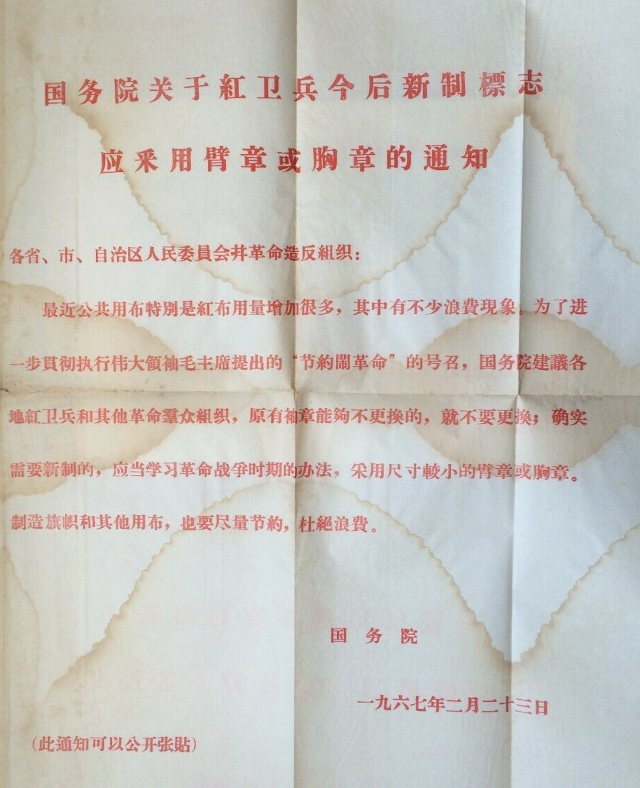 国务院关于紅卫兵今后新制標志
应采用臂章或胸章的通知
各省、市、自治区人民委員会并革命造反組织：
最近公共用布特別是紅布用量增加很多，其中有不少浪費現象。为了进
一步貫彻执行伟大領袖毛主席提出的“节約鬧革命”的号召，国务院建議各
地紅卫兵和其他革命羣众組织，原有袖章能夠不更換的，就不要更換；确实
需要新制的，应当学习革命战爭时期的办法，采用尺寸較小的臂章或胸章。
制造旗帜和其他用布，也要尽量节約，杜絕浪費。
国务院
一九六七年二月二十三日
（此通知可以公开张貼）